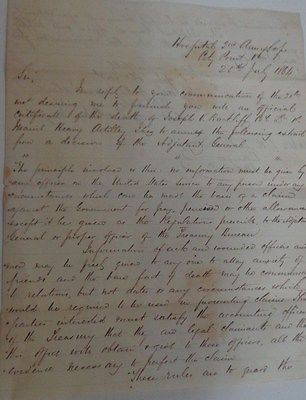 Hospital, 2nd Army Corps
City Point, Va.
25th July 1864
Sir,
In reply to your communication of the 20th
inst desiring me to furnish you with an official
certificate of the death of Joseph
Heavy Artillery, I beg to annex the following extract
from a decision of the Adjutant General
"The principle involved is this: no information must be given by
any officer in the United States Service to any person under any
circumstances which can be made the basis of a claim
against the Government for pay, pension or other allowance
except it be given as the Regulations prescribe to the Adjutant
General or proper officer of the Treasury Bureau
Information of sick and wounded officers and
men may be freely given to any one to allay anxiety of
friends and the bare fact of death may be communicated
to relatives, but not dates or any circumstances which
would be required to be used in presenting claims
Parties interested must satisfy the accounting officers
of the Treasury that they are legal claimants and
this effect will obtain those officers, all the
evidence necessary to perfect the claim.
These rules are to guard the